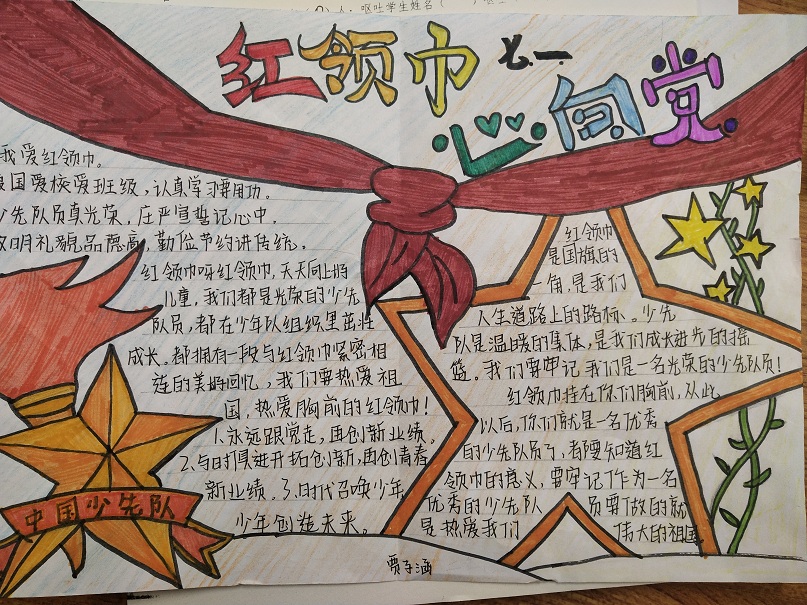 呕吐学生姓名
红领巾 七一
心向党
我爱红领巾。
国爱校爱班级,认真学习要用功。
少先队员真光荣,庄严宣誓记心中,
明礼貌品德高,勤俭节约讲传统,
红领巾呀红领巾,天天向上好
儿童,我们都是光荣的少先
队员,都在少年队组织里茁壮
成长。都拥有一段与红领巾紧密相
连的美好回忆,我们要热爱祖
国,热爱胸前的红领巾!
1、永远跟党走,再创新业绩。
2、与时俱进开拓创新,再创青春
新业绩。3、时代召唤少年,
少年创造未来。
中国少先队
红领巾
是国旗的
一角,是我们
人生道路上的路标、。少先
队是温暖的集体,是我们成长进步的摇
篮。我们要牢记,我们是一名光荣的少先队员!
红领巾挂在你们胸前,从此
以后,你们就是一名优秀
的少先队员了,都要知道红
领巾的意义,要牢记作为一名
优秀的少先队 员要做的就
是热爱我们 伟大的祖国
贾子涵